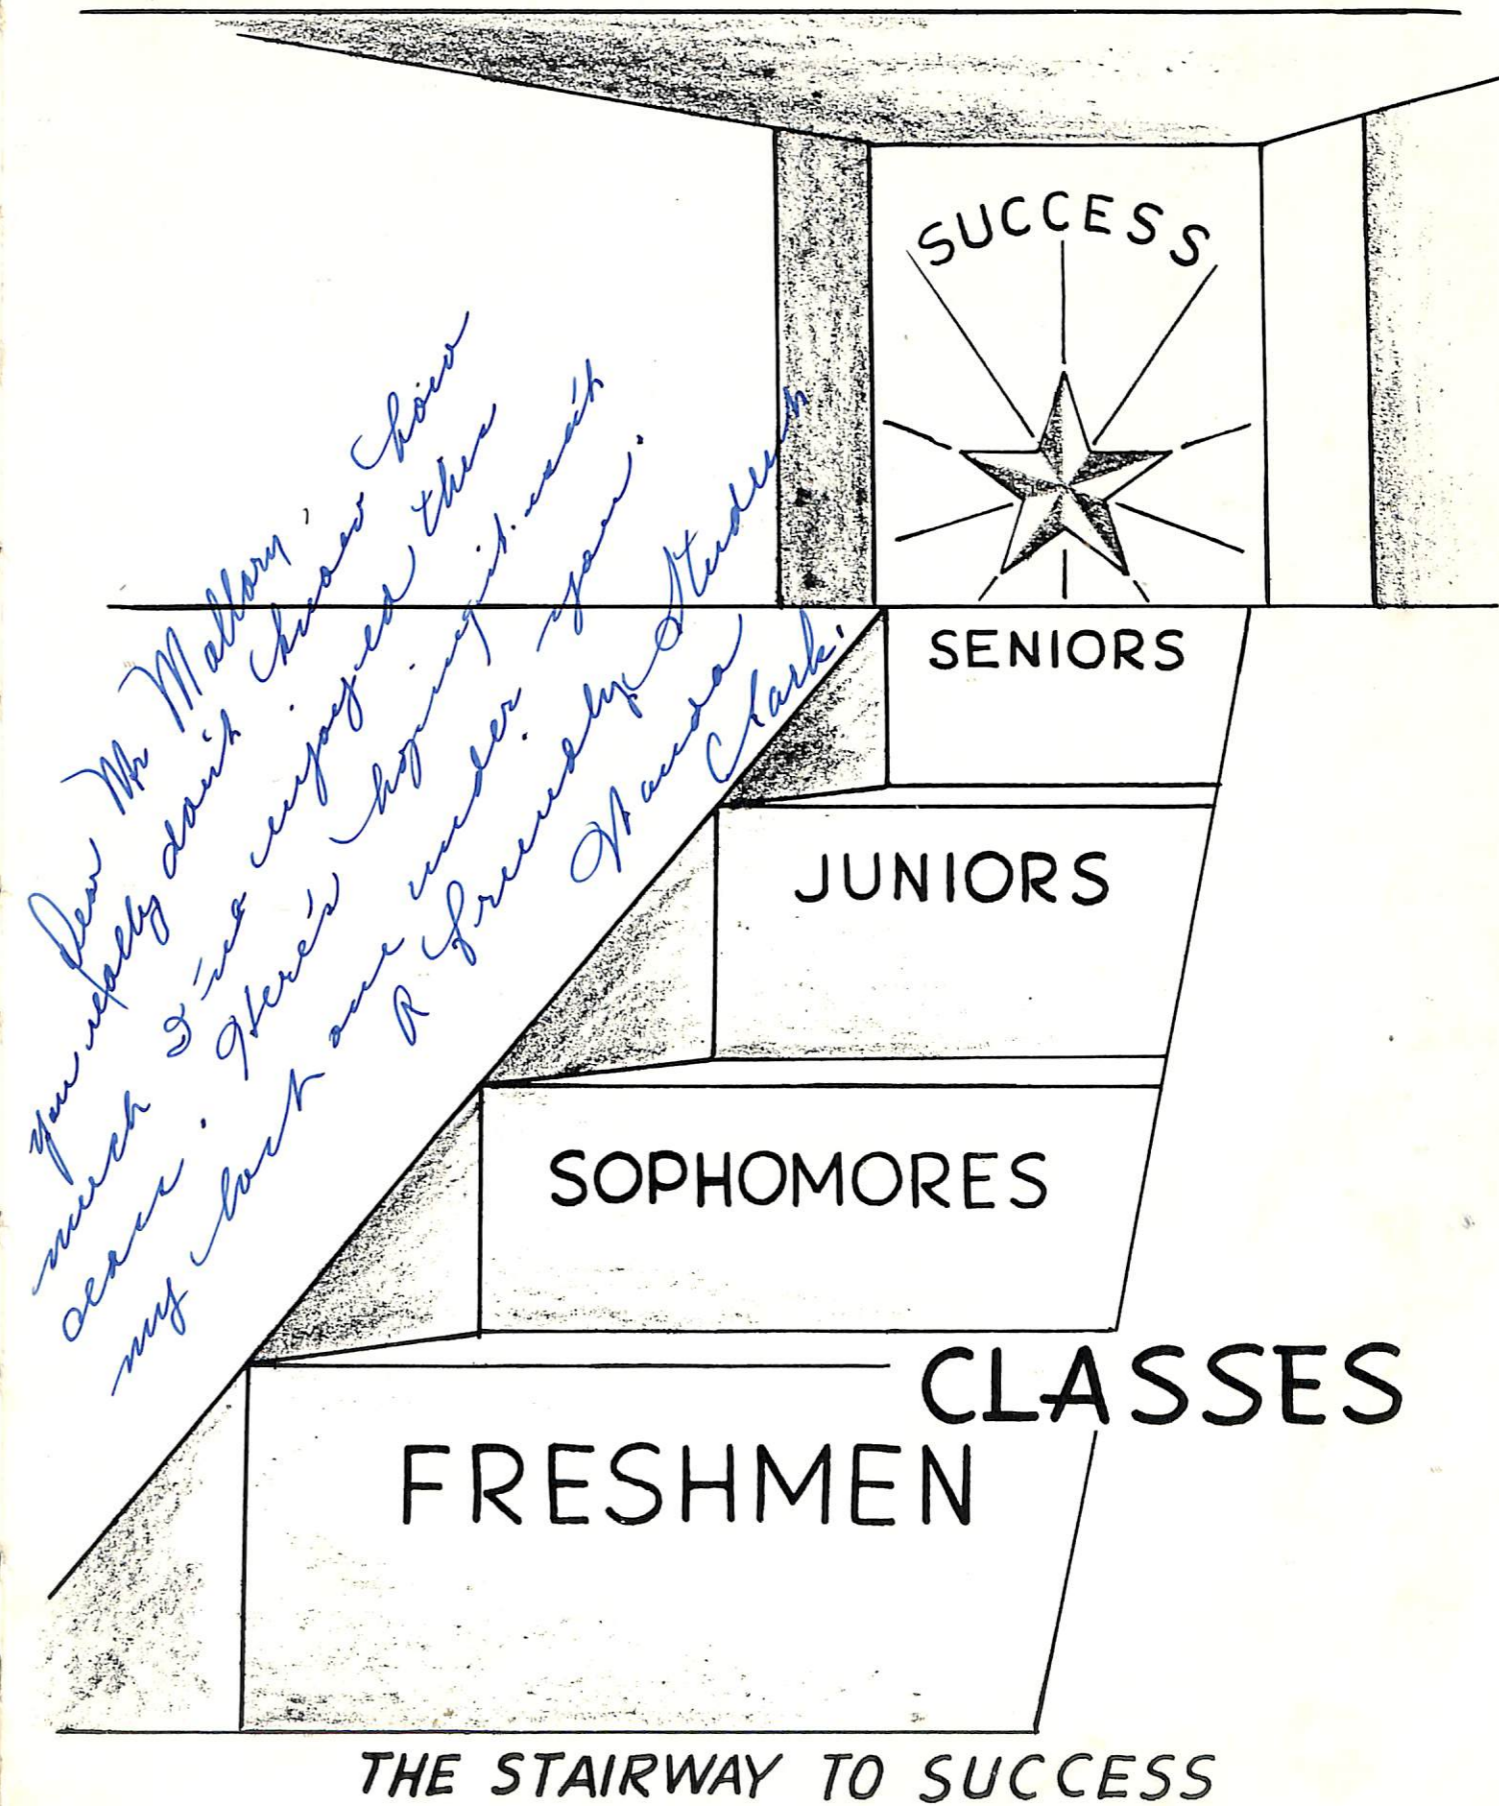 SUCCESS
Dear Mr Mallory,
you really don't know how
much I've enjoyed this
class. Here's hoping it isn't
my last one under you.
A friendly Student
Wanda
Clark.
SENIORS
JUNIORS
SOPHOMORES
CLASSES
FRESHMEN
THE STAIRWAY TO SUCCESS